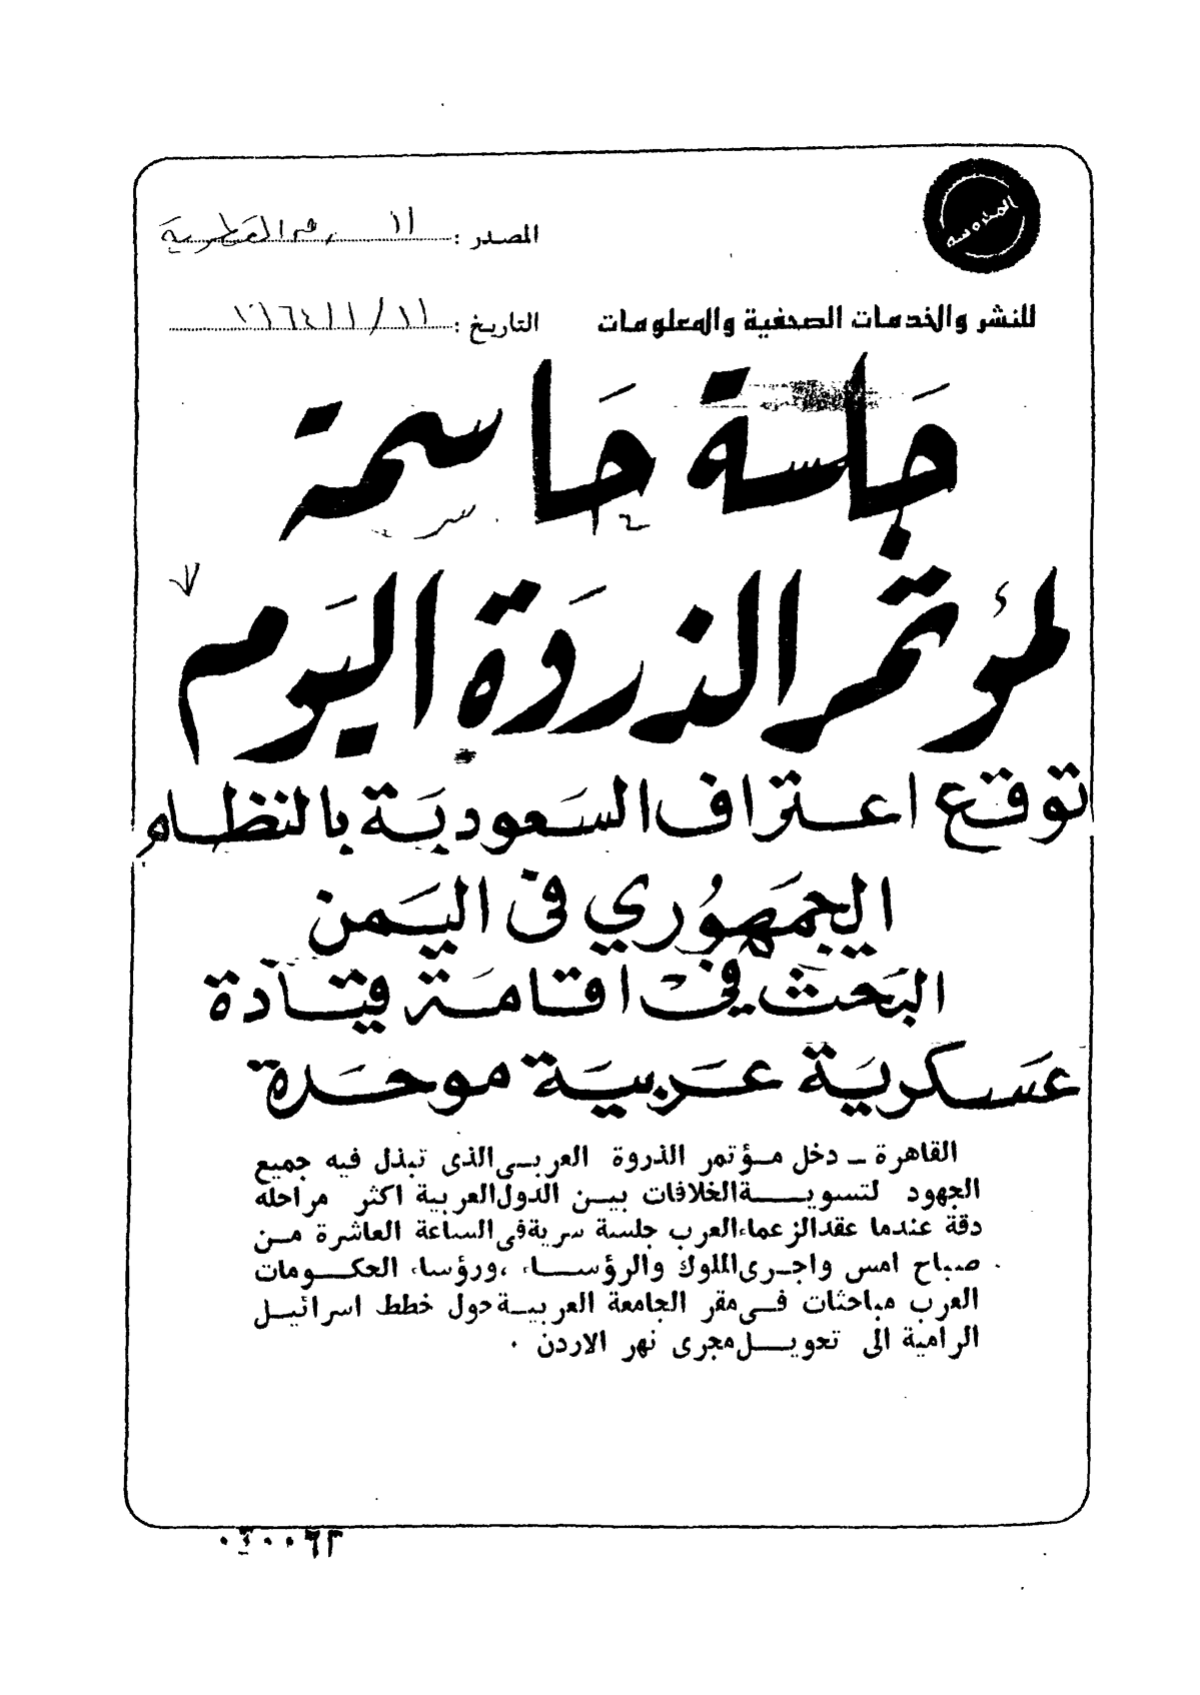 المحروسة
المصدر :
للنشر والخدمات الصحفية والمعلومات
التاريخ :
جلسة حاسمة
لمؤتمر الذروة اليوم
توقع اعتراف السعودية بالنظام
الجمهوري في اليمن
البحث في اقامة قيادة
عسكرية عربية موحدة
القاهرة ــ دخل مؤتمر الذروة العربى الذى تبذل فيه جميع
الجهود لتسوية الخلافات بين الدول العربية اكثر مراحله
دقة عندما عقد الزعماء العرب جلسة سرية فى الساعة العاشرة من
صباح امس واجرى الملوك والرؤساء ، ورؤساء الحكومات
العرب مباحثات فى مقر الجامعة العربية حول خطط اسرائيل
الرامية الى تحويل مجرى نهر الاردن .